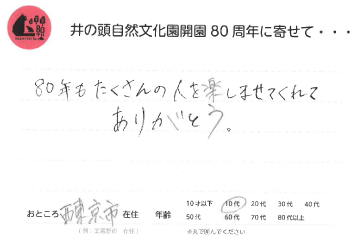 井の頭自然文化園開園80周年に寄せて・・・
80年もたくさんの人を楽しませてくれて
ありがとう。
おところ 西東京市 在住 年齢 10才以下 10代 20代 30代 40代
(例:武蔵野市 在住) 50代 60代 70代 80代以上
※丸で囲んでください